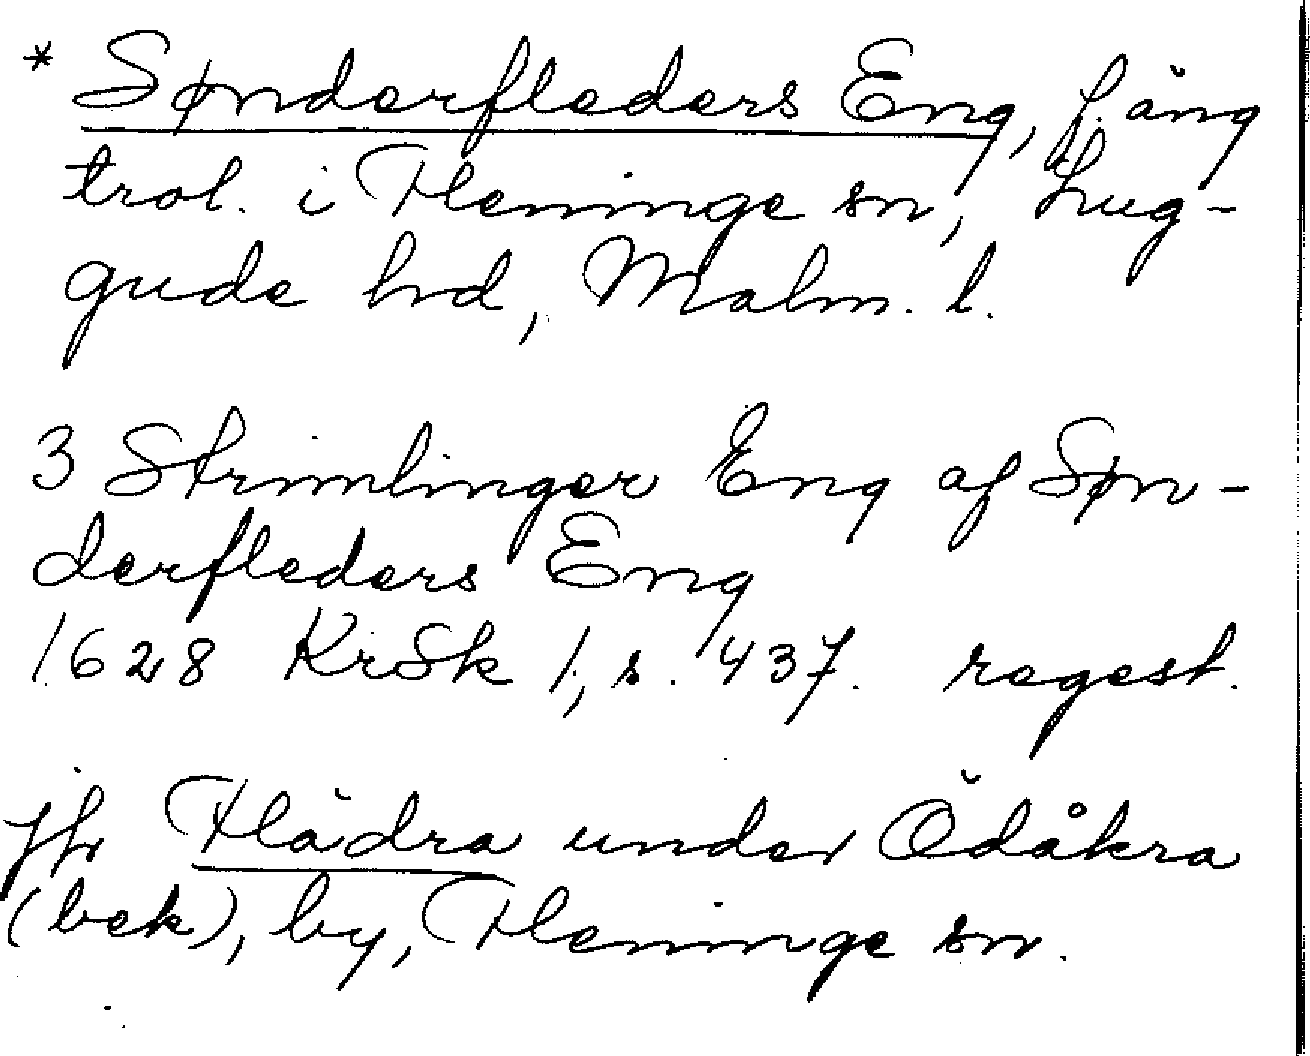 * Sønderfleders Eng, f. äng
trol. i Fleninge sn, Lug-
gude hd, Malm. l.
3 Strimlinger Eng af Søn-
derfleders Eng
1628 KrSk 1, s. 437. regest.
jfr Flädra under Ödåkra
(bek), by, Fleninge sn.